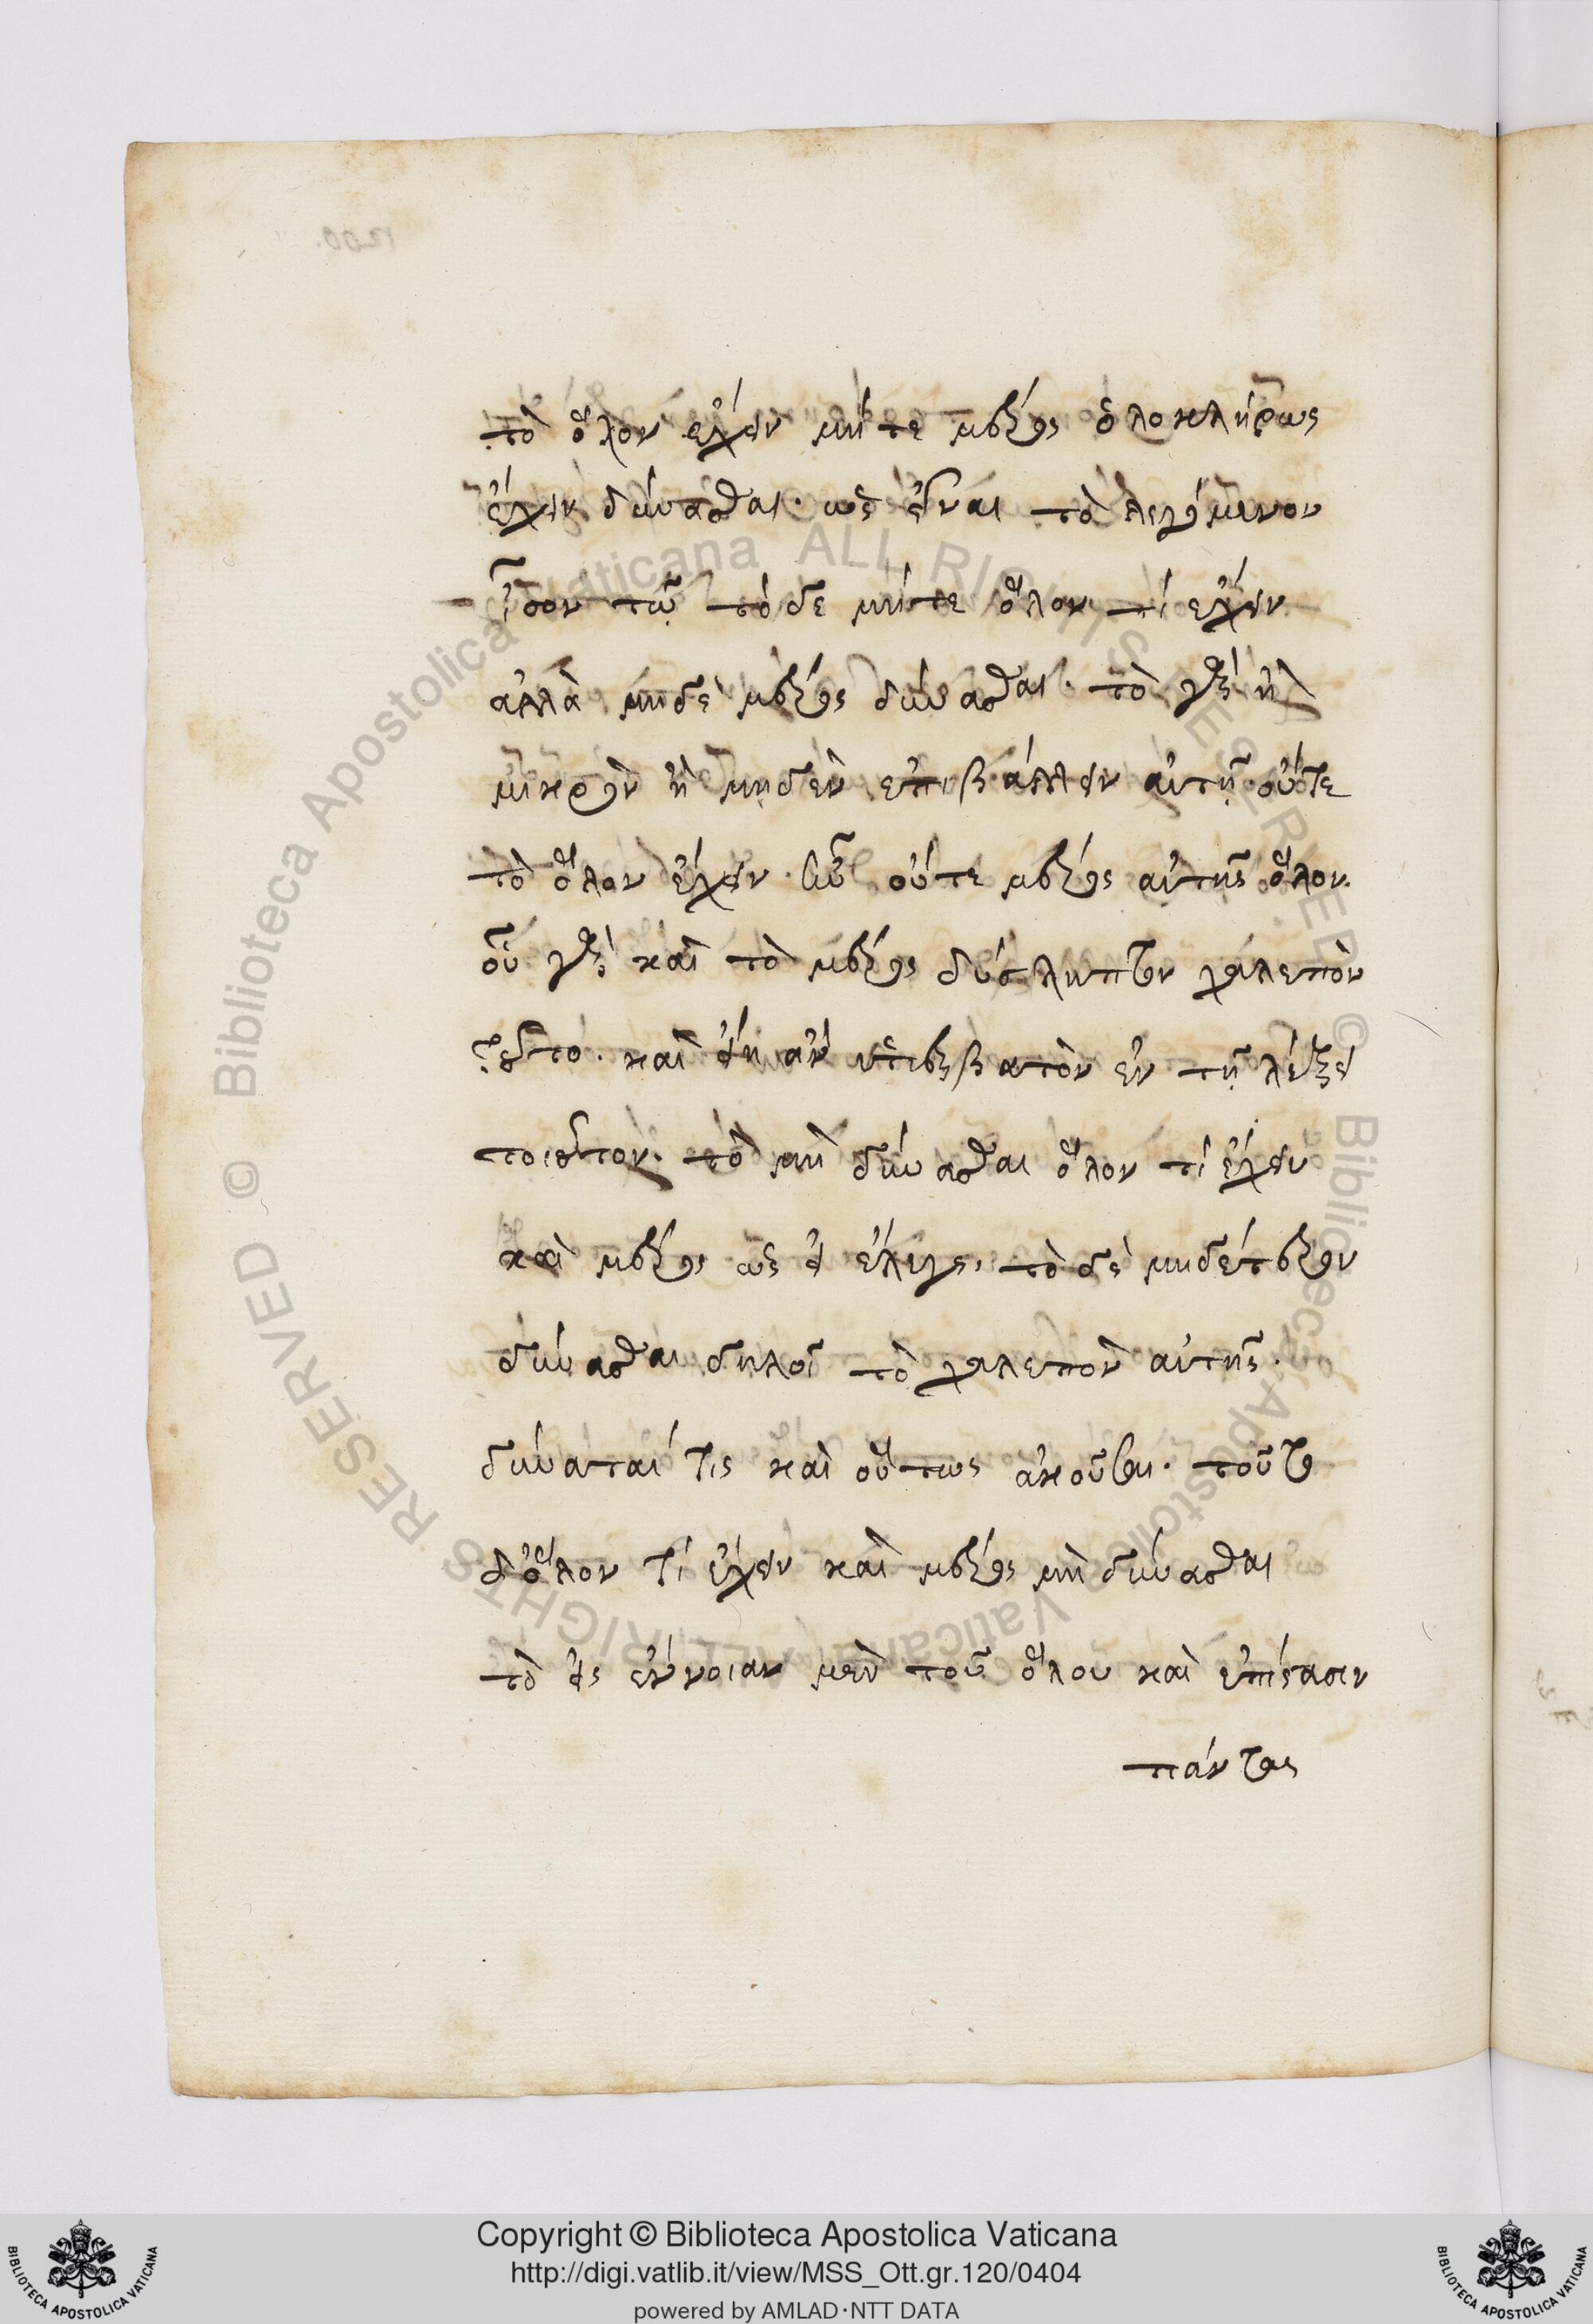 τὸ ὅλον ἔχειν μήτε μέρος ὁλοκλήρως
ἔχειν δύνασθαι· ὡς εἶναι τὸ λεγόμενον
ἴσον τῷ τό δε μήτε ὅλον τί ἔχειν
ἀλλὰ μηδὲ μέρος δύνασθαι· τὸ γὰρ ἢ
μικρὸν ἢ μηδὲν ἐπιβάλλειν αὐτῇ οὔτε
τὸ ὅλον ἔχειν οὔτε μέρος αὐτῆς ὅλον.
οὗ γὰρ καὶ τὸ μέρος δύσληπτον χαλεπὸν
τοῦτο. καὶ εἴη ἂν ὑπερβατὸν ἐν τῇ λέξει
τοιοῦτον. τὸ μὴ δύνασθαι ὅλον τί ἔχειν
καὶ μέρος ὡς εἰ ἔλεγε, τὸ δὲ μηδέτερον
δύνασθαι δηλοῖ τὸ χαλεπὸν αὐτῆς.
δύναταί τις καὶ οὕτως ἀκοῦσαι. τοῦτο
δ' ὅλον τί ἔχειν καὶ μέρος μὴ δύνασθαι
τὸ εἰς ἔννοιαν μὲν τοῦ ὅλου καὶ ἐπίστασιν
πάντας
© Biblioteca Apostolica Vaticana ALL RIGHTS RESERVED © Biblioteca Apostolica Vaticana ALL RIGHTS RESERVED
Copyright © Biblioteca Apostolica Vaticana
http://digi.vatlib.it/view/MSS_Ott.gr.120/0404
powered by AMLAD·NTT DATA
BIBLIOTECA APOSTOLICA VATICANA
BIBLIOTECA APOSTOLICA VATICANA